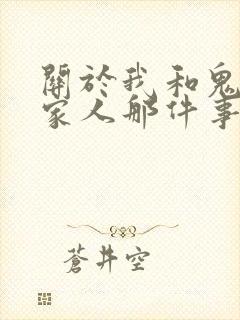 關於我和鬼
家人那件事
蒼井空